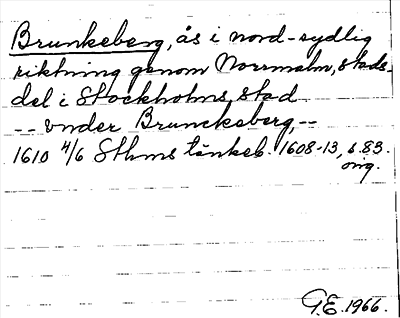 Brunkeberg, ås i nord-sydlig
riktning genom Norrmalm, stads-
del i Stockholms stad
-- vnder Brunckeberg, --
1610 4/6 Sthms tänkeb. 1608-13, s. 83.
orig.
G.E. 1966.